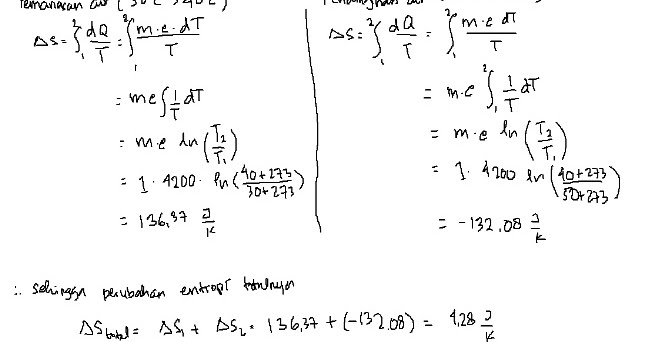 pemanasan air (30°C → 40°C)
ΔS = ∫₁² dQ/T = ∫₁² m·c·dT/T
= mc ∫ 1/T dT
= m·c ln (T₂/T₁)
= 1 · 4200 · ln (40+273/30+273)
= 136,37 J/K
air
ΔS = ∫₁² dQ/T = ∫₁² m·c dT/T
= m·c ∫₁² 1/T dT
= m·c ln (T₂/T₁)
= 1 · 4200 ln (40+273/50+273)
= -132,08 J/K
∴ sehingga perubahan entropi totalnya
ΔS total = ΔS₁ + ΔS₂ = 136,37 + (-132.08) = 4,28 J/K